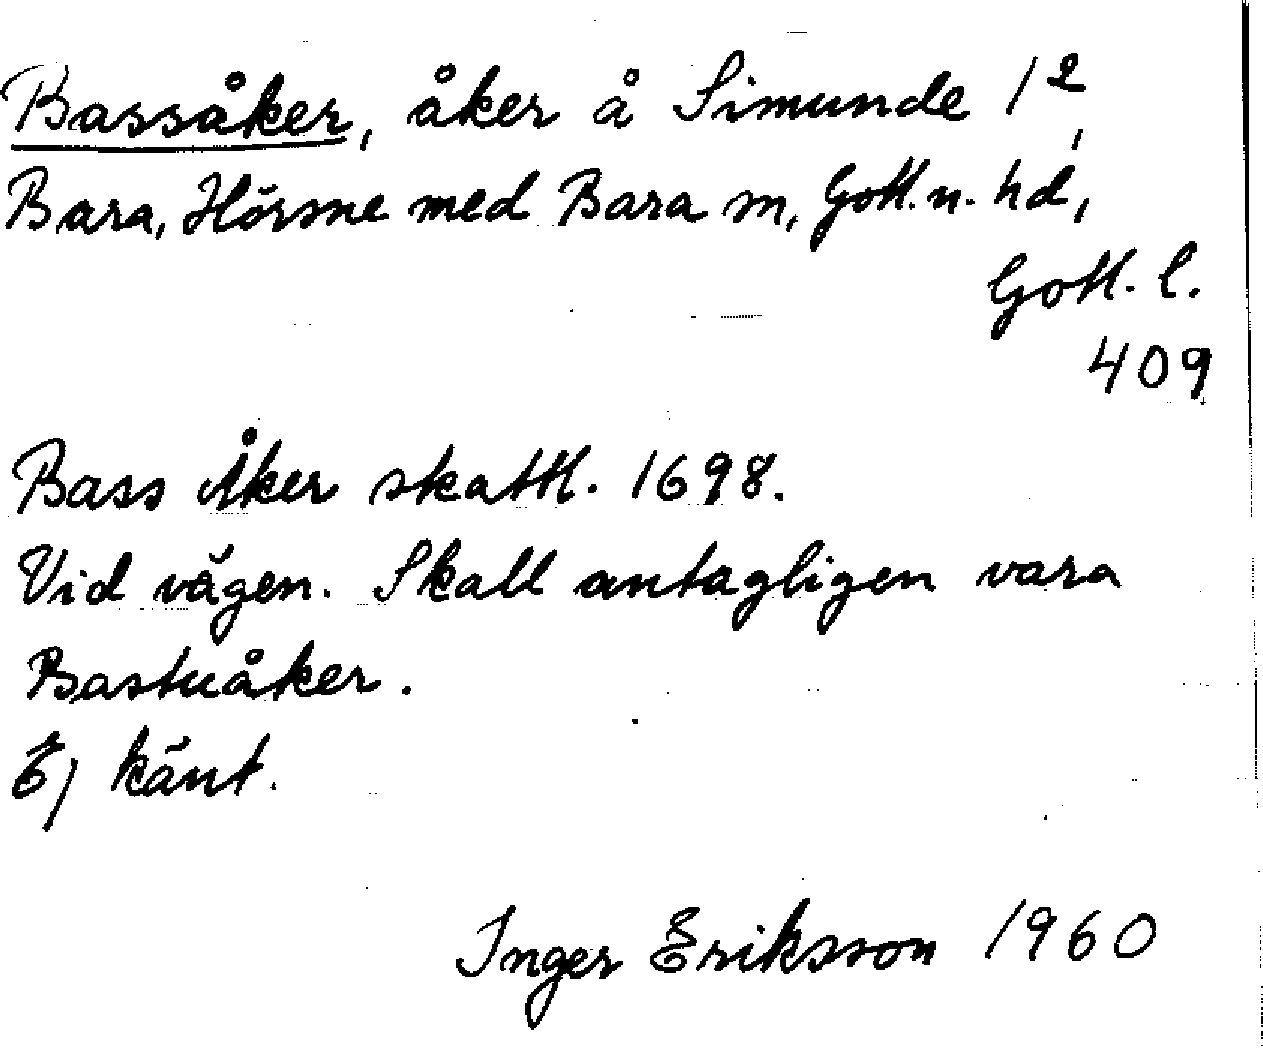 Bassåker, åker å Simunde 1²,
Bara, Hörsne med Bara sn, Gotl. n. hd,
Gotl. l.
409
Bass Åker skattl. 1698.
Vid vägen. Skall antagligen vara
Bastuåker.
Ej känt.
Inger Eriksson 1960